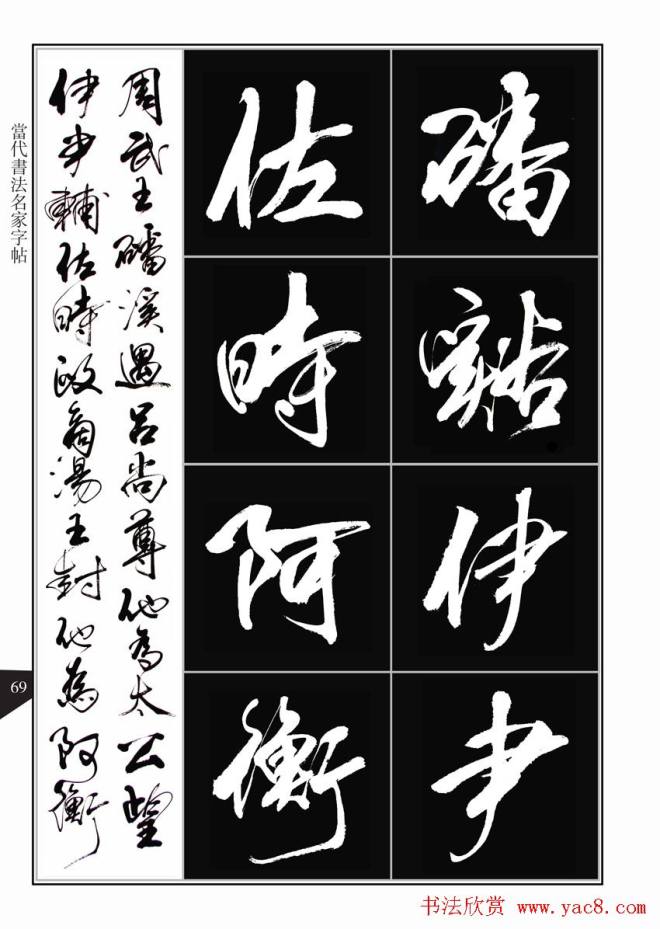 磻谿伊尹
佐時阿衡
周武王磻溪遇吕尚尊他為太公望
伊尹輔佐時政商湯王封他為阿衡
當代書法名家字帖
69
书法欣赏 www.yac8.com